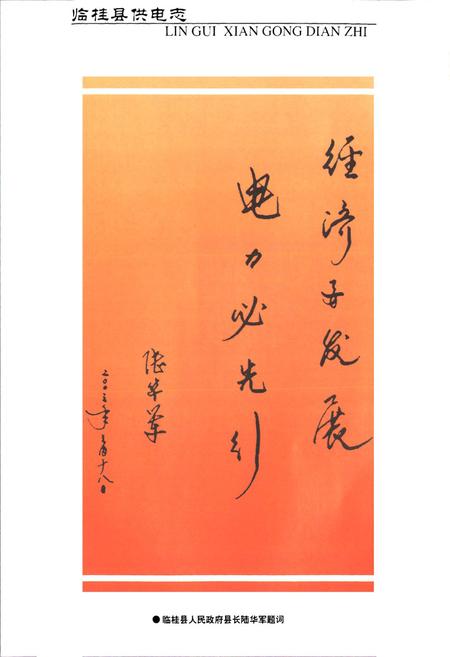 临桂县供电志
LIN GUI XIAN GONG DIAN ZHI
经济要发展
电力必先行
陆华军
二〇〇三年 月十八日
●临桂县人民政府县长陆华军题词